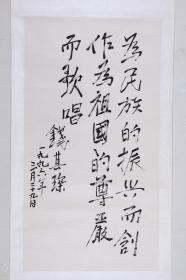 為民族的振兴而創
作為祖國的尊嚴
而歌唱
錢其琛
一九九六年
二月二十九日